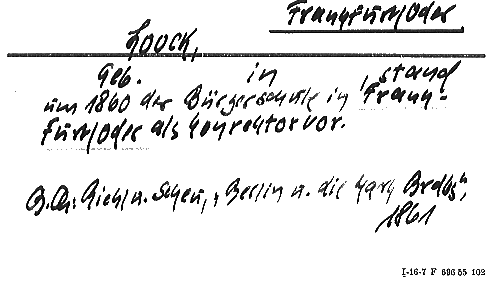 Frankfurt/Oder
Loock,
Geb. in , stand
um 1860 der Bürgerschule in Frank-
furt/Oder als Konrektor vor.
B.Qu.: Riehl u. Scheu, „Berlin u. die Mark Brdbg“,
1861
I-16-7 F 696 55 102